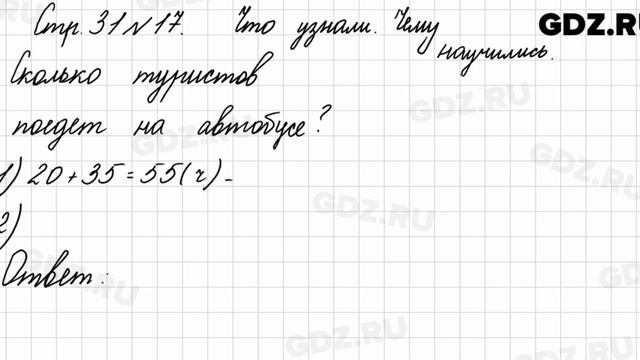 Стр. 31 № 17. Что узнали. Чему научились.
GDZ.RU
Сколько туристов
поедет на автобусе?
1) 20 + 35 = 55 (ч) -
2)
Ответ:
GDZ.RU
GDZ.RU
GDZ.RU
GDZ.RU
GDZ.RU
GDZ.RU
GDZ.RU